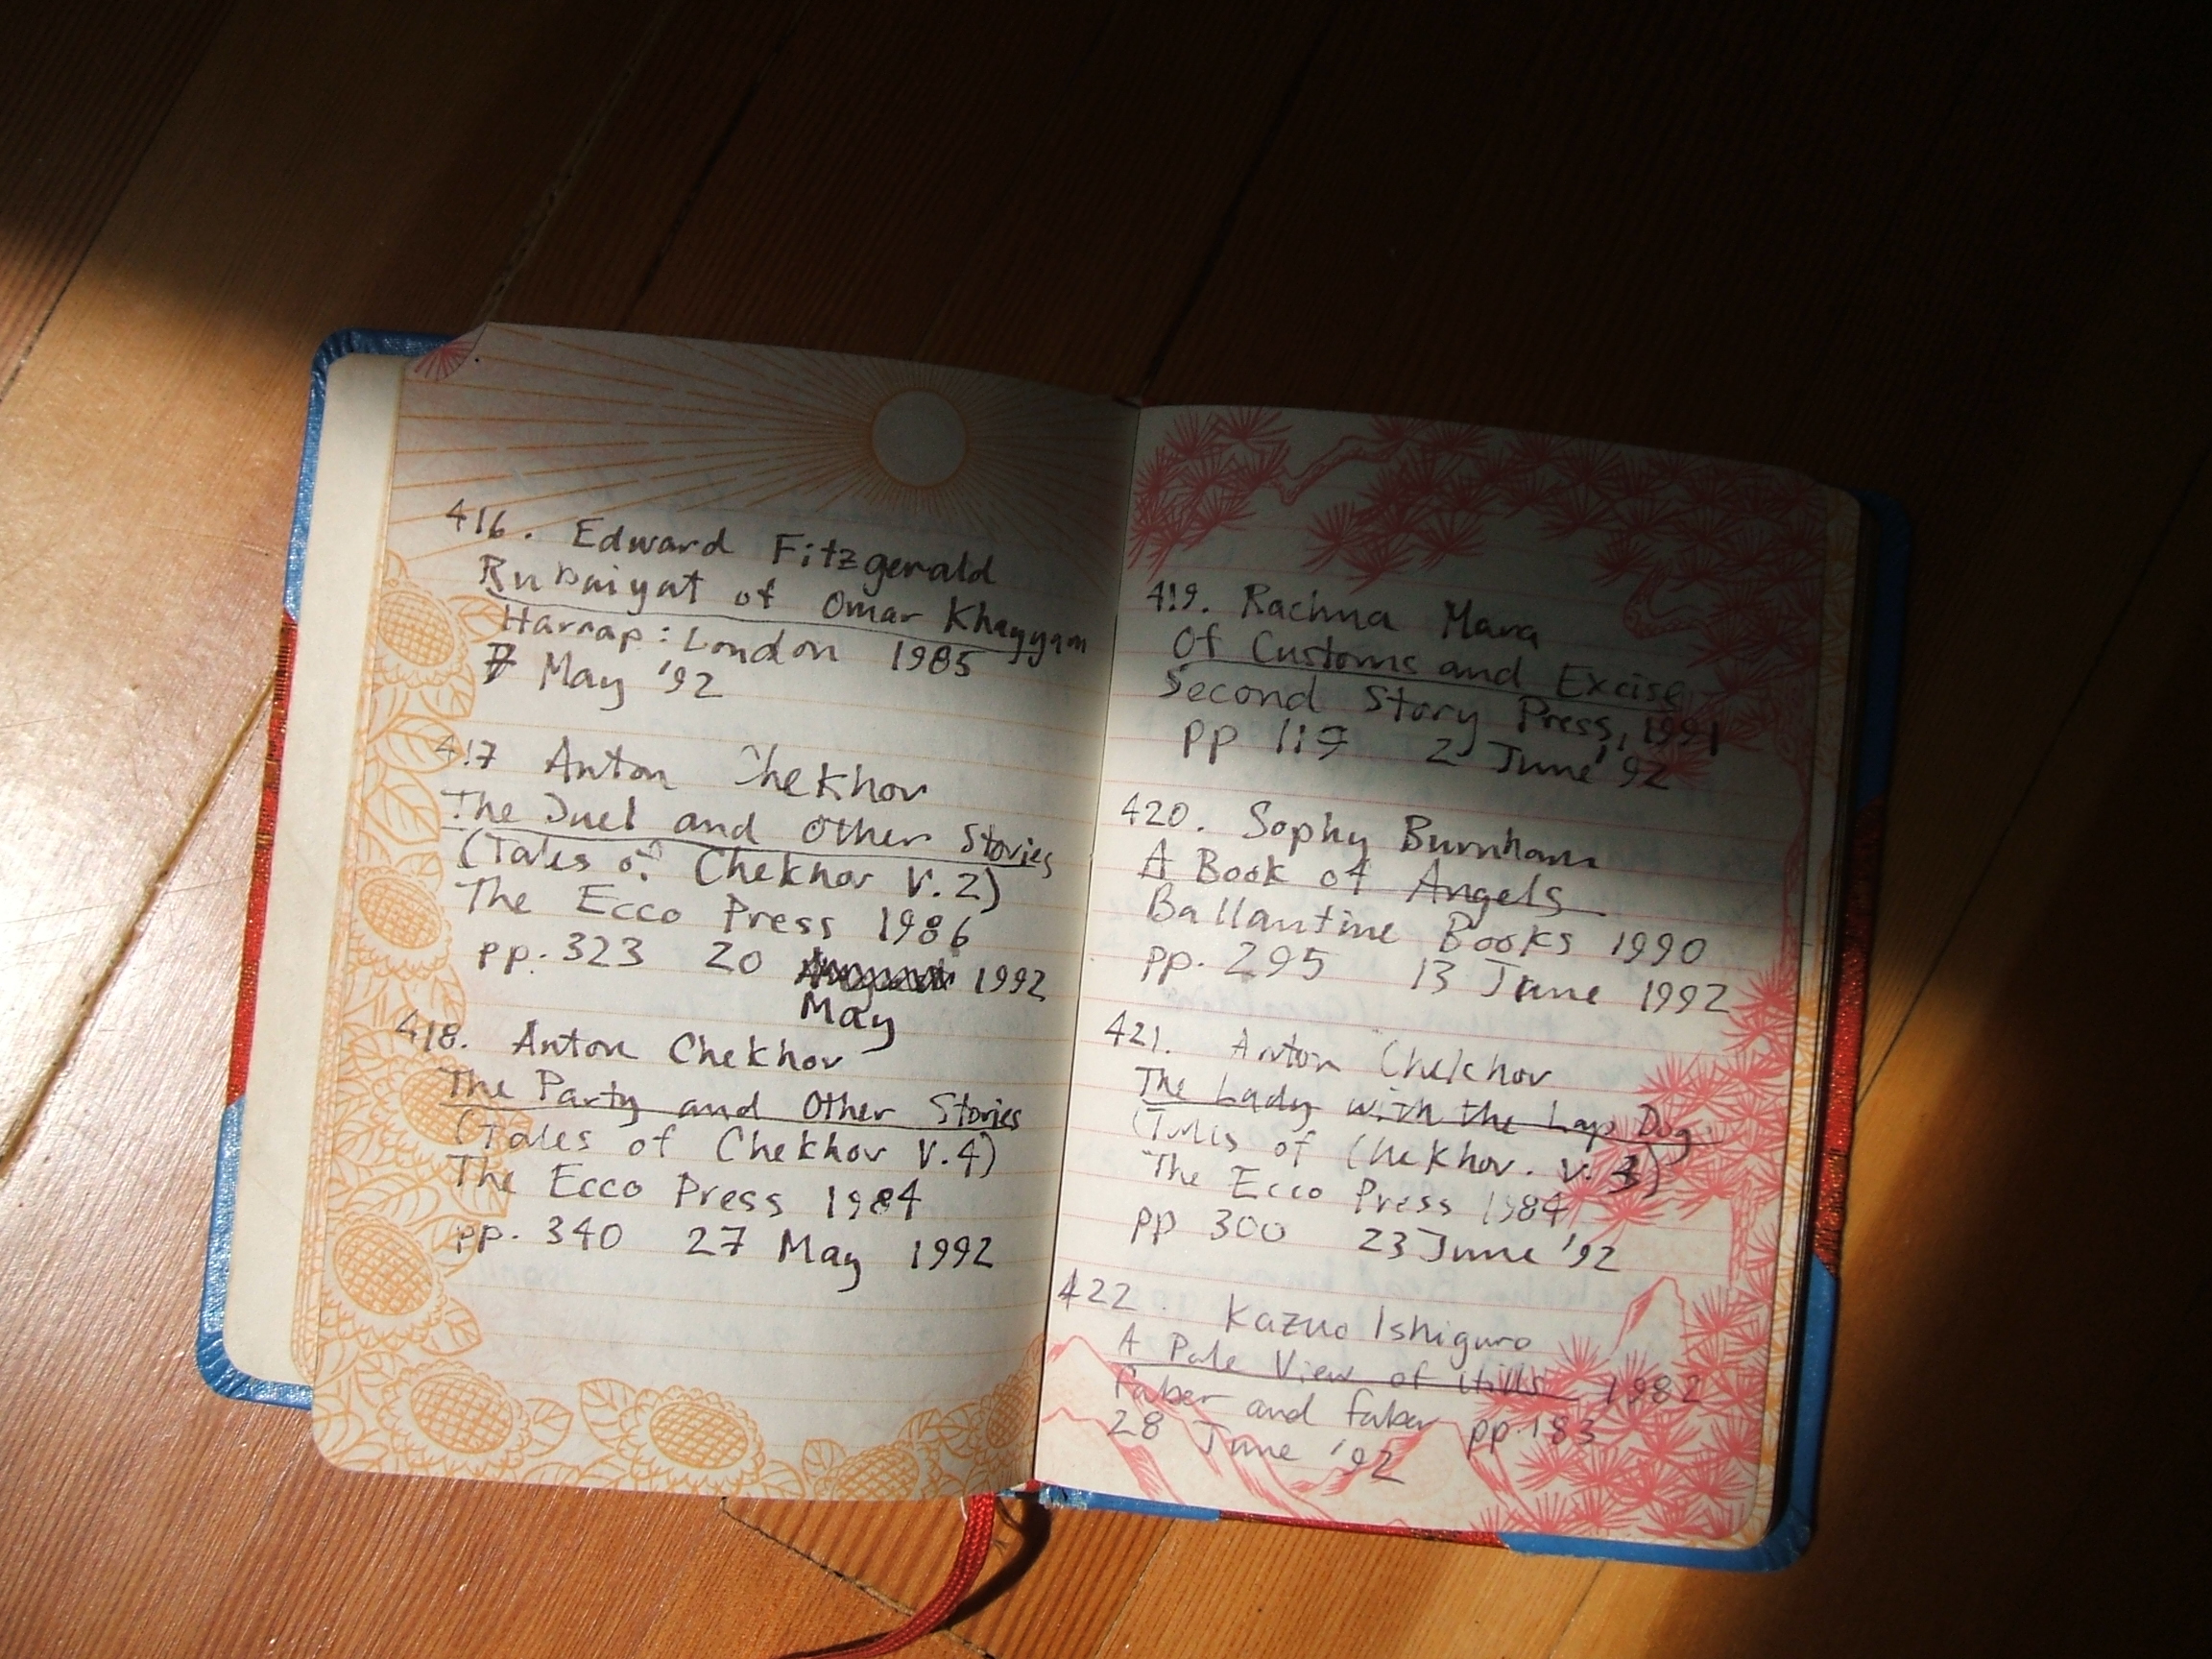 416. Edward Fitzgerald
Rubaiyat of Omar Khayyam
Harrap: London 1985
7 May '92
417 Anton Chekhov
The Duel and Other Stories
(Tales of Chekhov V.2)
The Ecco Press 1986
pp. 323 20 1992
May
418. Anton Chekhov
The Party and Other Stories
(Tales of Chekhov V.4)
The Ecco Press 1984
pp. 340 27 May 1992
419. Rachna Mara
Of Customs and Excise
Second Story Press, 1991
pp 119 2 June '92
420. Sophy Burnham
A Book of Angels
Ballantine Books 1990
pp. 295 13 June 1992
421. Anton Chekhov
The Lady with the Lap Dog
(Tales of Chekhov. V. 3)
The Ecco Press 1984
pp 300 23 June '92
422. Kazuo Ishiguro
A Pale View of Hills 1982
Faber and Faber pp. 183
28 June '92